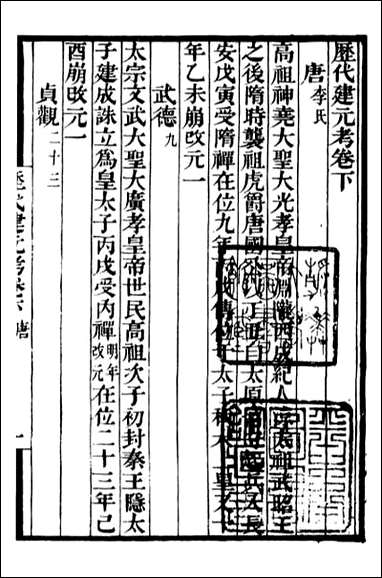 歷代建元考卷下
唐 李氏
高祖神堯大聖大光孝皇帝淵隴西成紀人 涼太祖武昭王
之後隋時襲祖虎爵唐國 太原 起兵入長
安戊寅受隋禪在位九年 傳位 太子 皇又七
年乙未崩改元一
武德 九
太宗文武大聖大廣孝皇帝世民高祖次子初封秦王隱太
子建成誅立為皇太子丙戌受內禪 明年改元 在位二十三年己
酉崩改元一
貞觀 二十三
唐
一